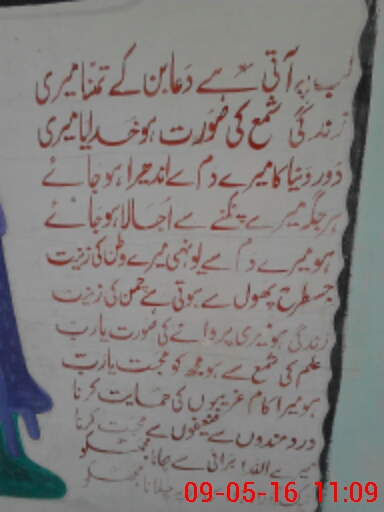 لب پہ آتی ہے دعا بن کے تمنا میری
زندگی شمع کی صورت ہو خدایا میری
دور دنیا کا میرے دم سے اندھیرا ہو جائے
ہر جگہ میرے چمکنے سے اجالا ہو جائے
ہو میرے دم سے یونہی میرے وطن کی زینت
جسطرح پھول سے ہوتی ہے چمن کی زینت
زندگی ہو میری پروانے کی صورت یارب
علم کی شمع سے ہو مجھ کو محبت یارب
ہو میرا کام غریبوں کی حمایت کرنا
دردمندوں سے ضعیفوں سے محبت کرنا
میرے اللہ! برائی سے بچانا مجھکو
مجھکو
09-05-16 11:09